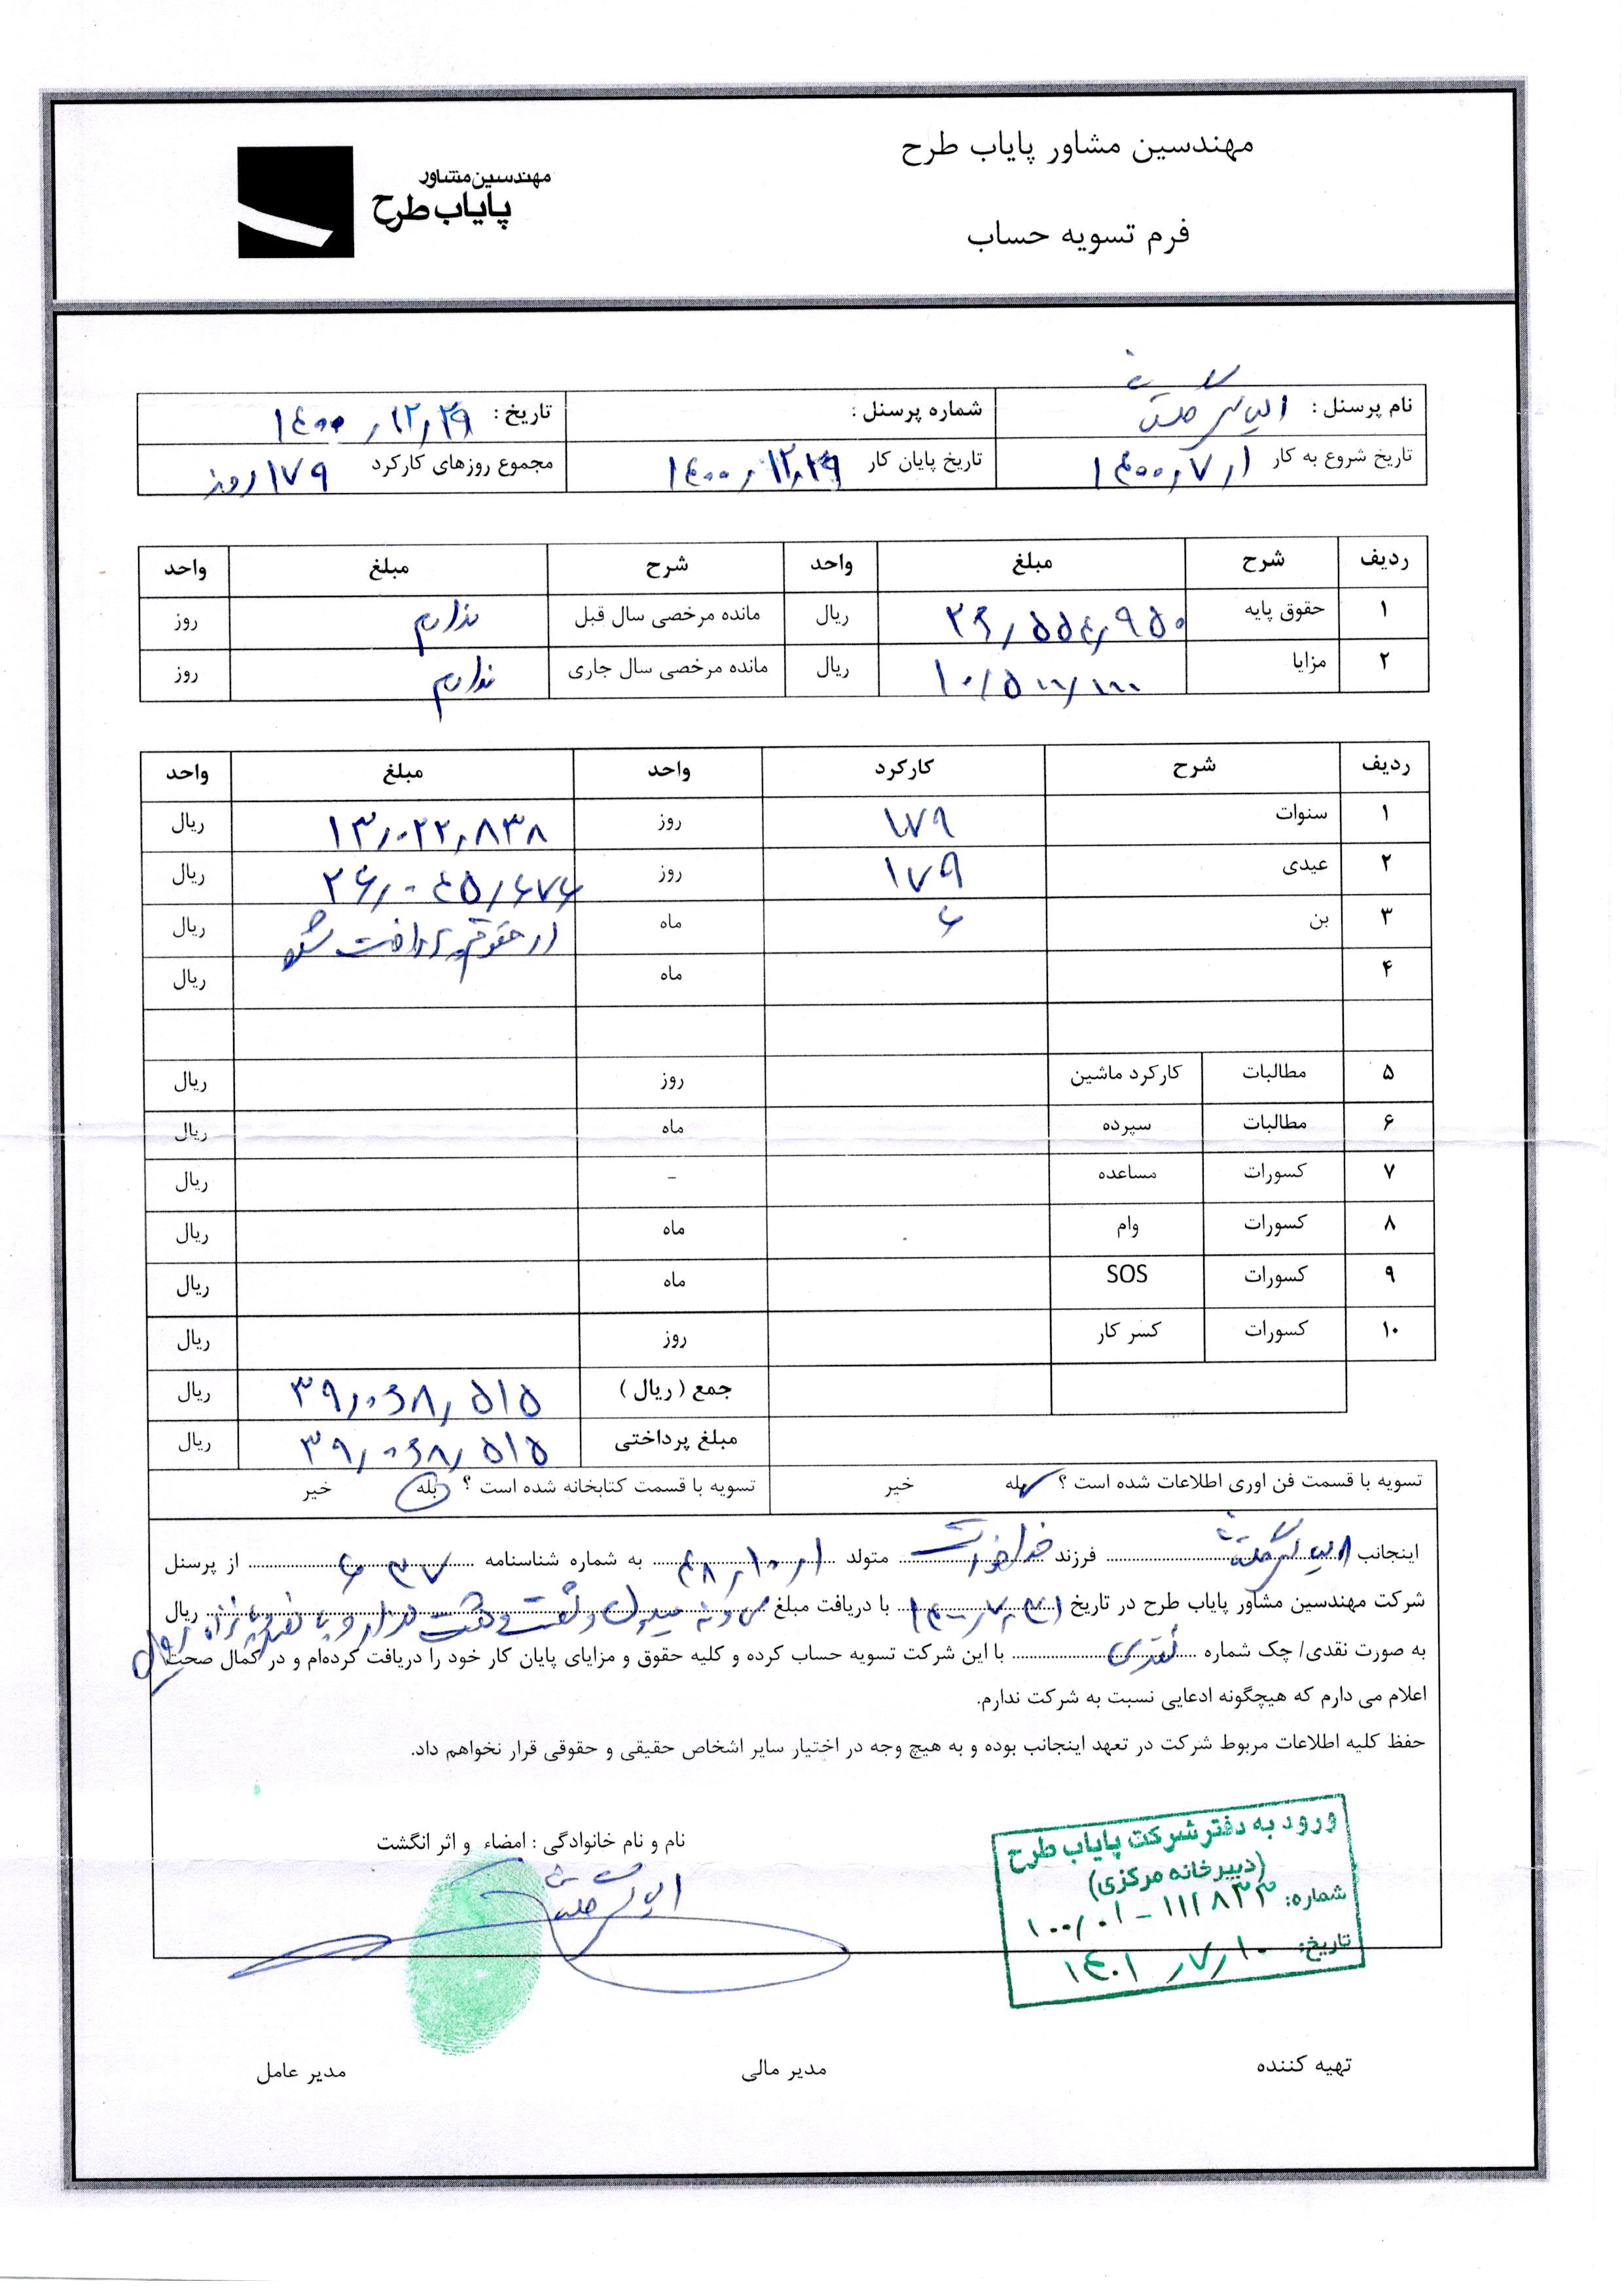 مهندسین مشاور پایاب طرح
مهندسین مشاور
پایاب طرح
فرم تسویه حساب
نام پرسنل : الیاس
شماره پرسنل :
تاریخ : ۱۴۰۰٫۱۲٫۲۹
تاریخ شروع به کار ۱۴۰۰٫۷٫۱
تاریخ پایان کار ۱۴۰۰٫۱۲٫۲۹
مجموع روزهای کارکرد ۱۷۹ روز
ردیف شرح مبلغ واحد شرح مبلغ واحد
۱ حقوق پایه ۲۶٫۵۵۴٫۹۵۰ ریال مانده مرخصی سال قبل ندارم روز
۲ مزایا ۱۰٫۵۰۰٫۰۰۰ ریال مانده مرخصی سال جاری ندارم روز
ردیف شرح کارکرد واحد مبلغ واحد
۱ سنوات ۱۷۹ روز ۱۳٫۰۲۲٫۸۳۸ ریال
۲ عیدی ۱۷۹ روز ۲۶٫۰۴۵٫۶۷۶ ریال
۳ بن ۶ ماه در حقوق دریافت شد ریال
۴ ماه ریال
۵ مطالبات کارکرد ماشین روز ریال
۶ مطالبات سپرده ماه ریال
۷ کسورات مساعده - ریال
۸ کسورات وام ماه ریال
۹ کسورات SOS ماه ریال
۱۰ کسورات کسر کار روز ریال
جمع ( ریال ) ۳۹٫۰۶۸٫۵۱۵ ریال
مبلغ پرداختی ۳۹٫۰۶۸٫۵۱۵ ریال
تسویه با قسمت فن اوری اطلاعات شده است ؟ بله خیر
تسویه با قسمت کتابخانه شده است ؟ بله خیر
اینجانب الیاس فرزند متولد ۴۸٫۱۰٫۱ به شماره شناسنامه ۶۳۷ از پرسنل
شرکت مهندسین مشاور پایاب طرح در تاریخ ۱۴۰۰٫۷٫۳۱ با دریافت مبلغ سی و نه میلیون و شصت و هشت هزار و پانصد و پانزده ریال ریال
به صورت نقدی/ چک شماره نقدی با این شرکت تسویه حساب کرده و کلیه حقوق و مزایای پایان کار خود را دریافت کرده‌ام و در کمال صحت
اعلام می دارم که هیچگونه ادعایی نسبت به شرکت ندارم.
حفظ کلیه اطلاعات مربوط شرکت در تعهد اینجانب بوده و به هیچ وجه در اختیار سایر اشخاص حقیقی و حقوقی قرار نخواهم داد.
نام و نام خانوادگی : امضاء و اثر انگشت
الیاس
ورود به دفتر شرکت پایاب طرح
(دبیرخانه مرکزی)
شماره: ۱۰۰٫۰۱ - ۱۱۱۸۳۳
تاریخ: ۱۴۰۱٫۷٫۱۰
تهیه کننده
مدیر مالی
مدیر عامل